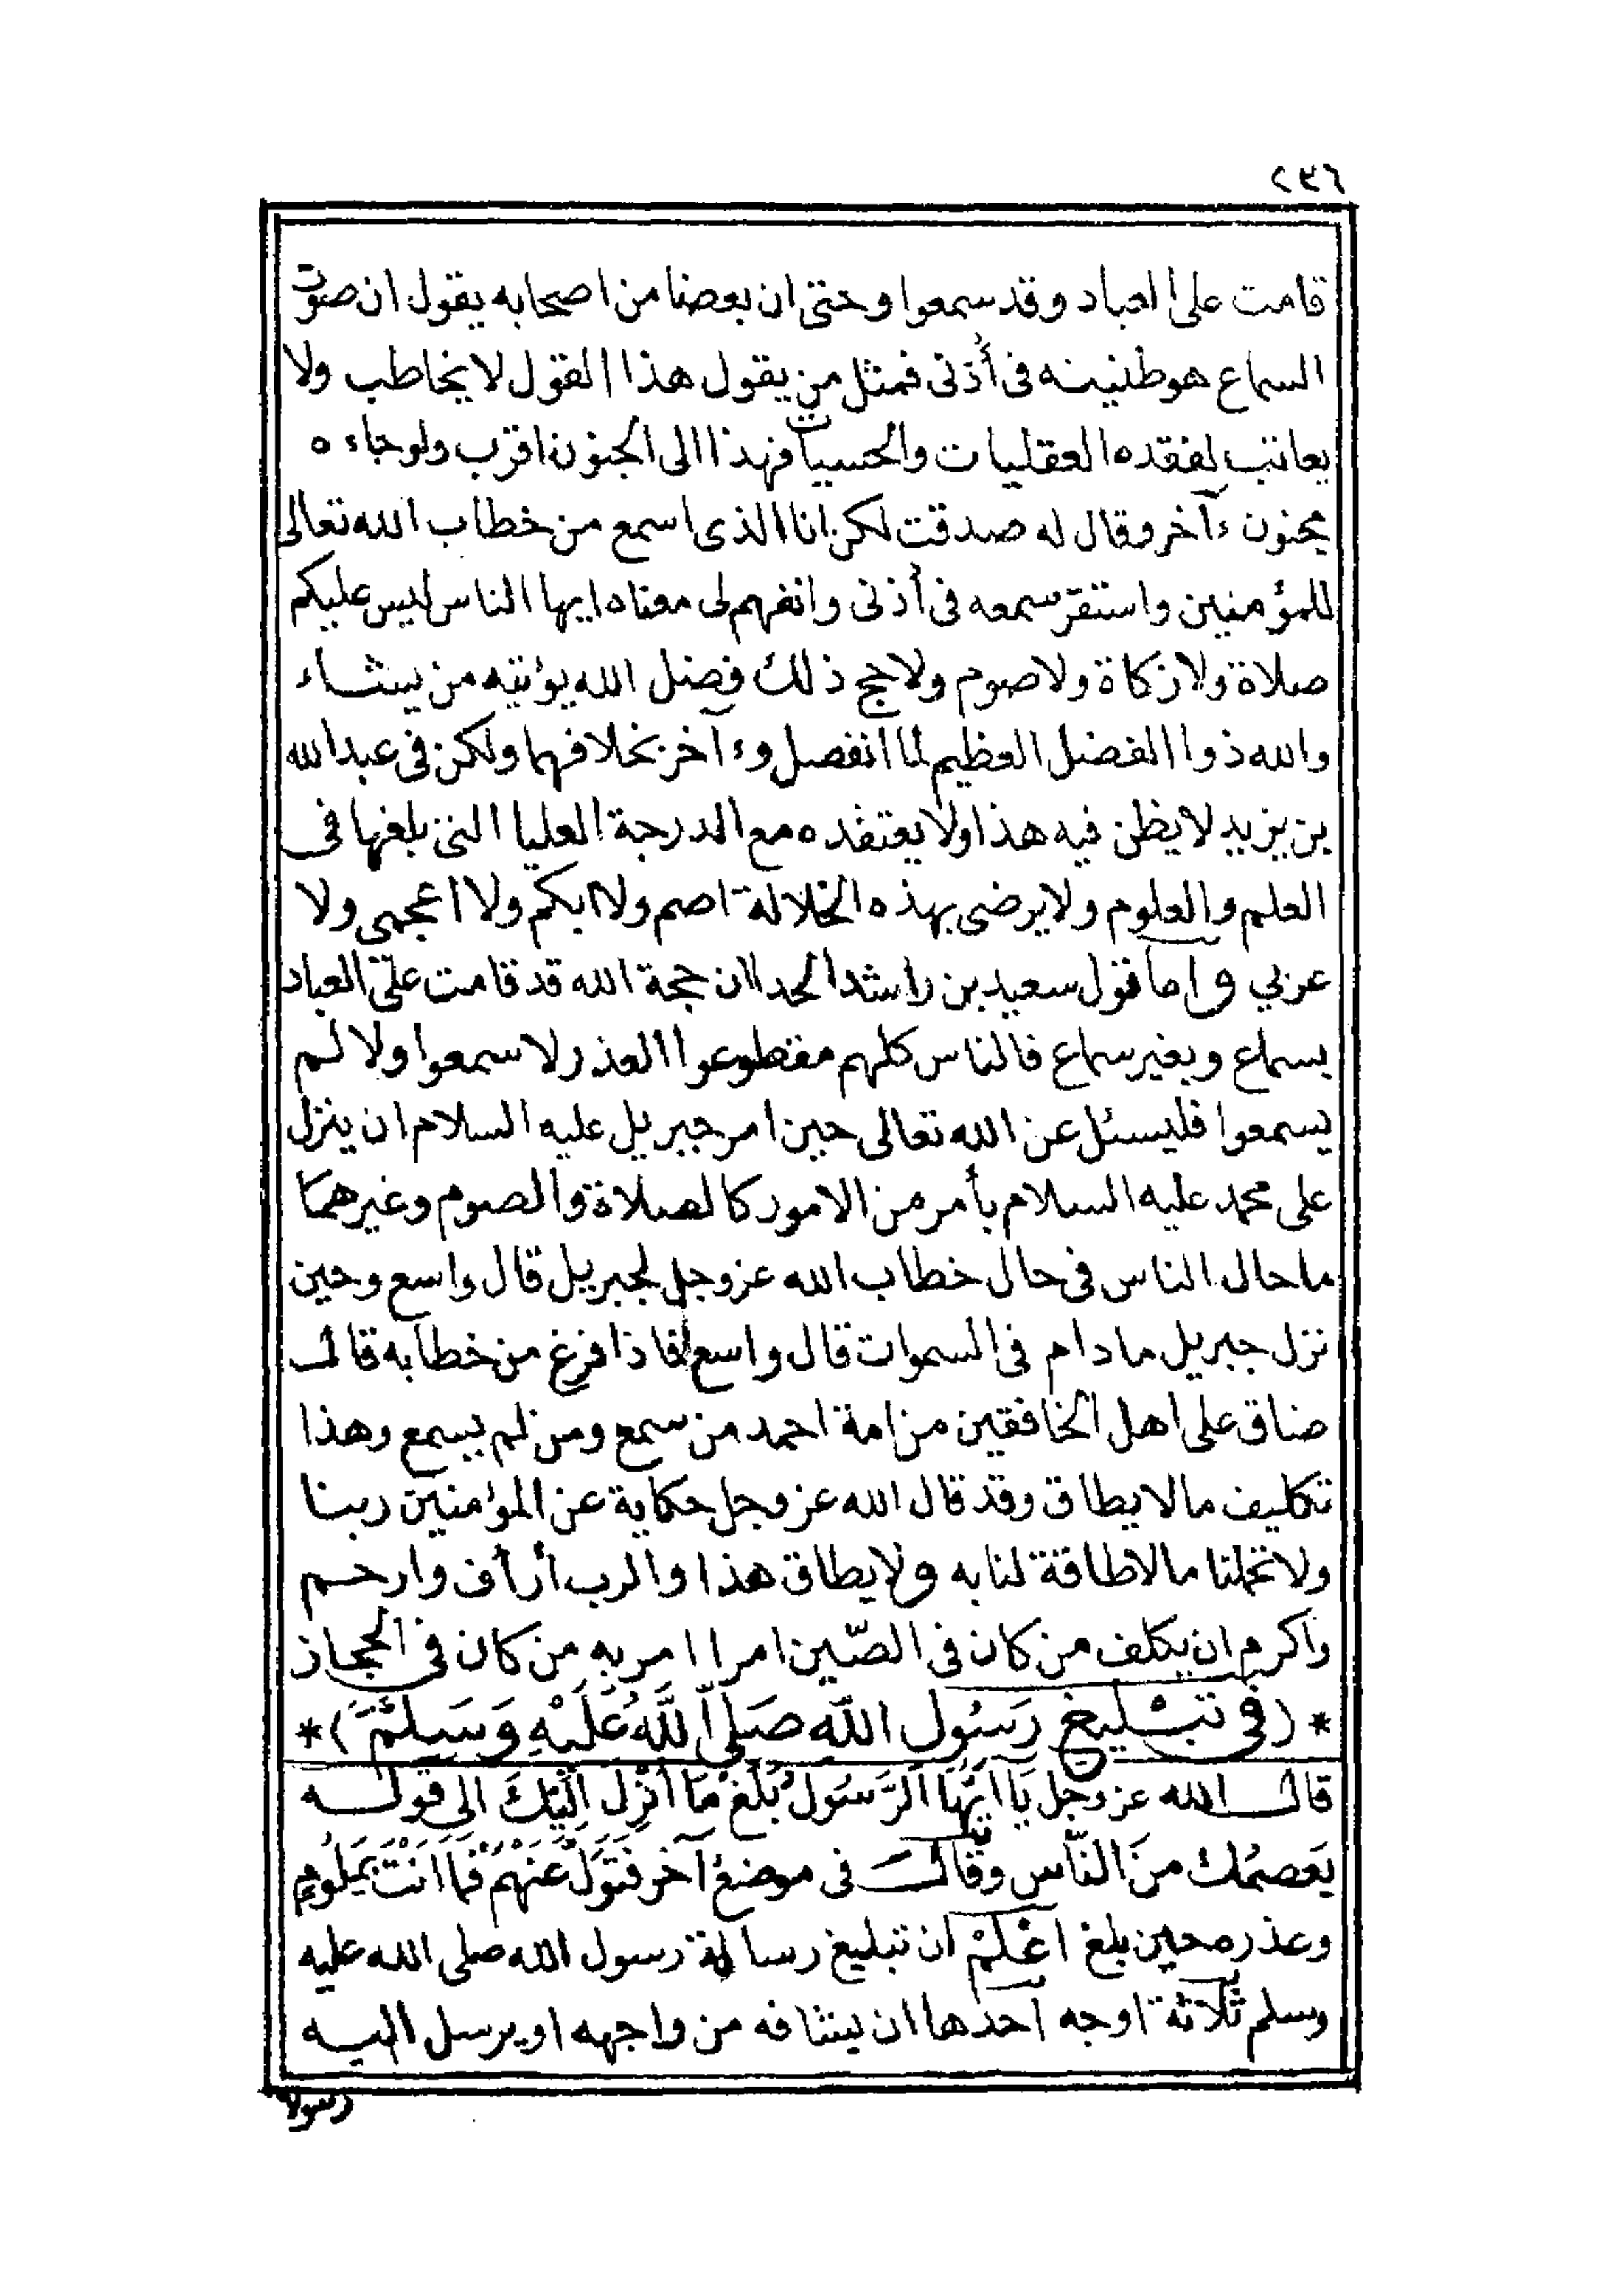 ٢٣٦
قامت على العباد وقد سمعوا وحتى ان بعضنا من اصحابه يقول ان صوت
السماع هو طنينه فى أُذنى فمثل من يقول هذا القول لا يخاطب ولا
يعاتب لفقده العقليات والحسيات فهذا الى الجنون اقرب ولو جاءه
مجنون ءآخر وقال له صدقت لكن انا الذى اسمع من خطاب الله تعالى
للمؤمنين واستقر سمعه فى أذنى وانفهم لى معناه ايها الناس ليس عليكم
صلاة ولا زكاة ولا صوم ولا حج ذلك فضل الله يؤتيه من يشاء
والله ذوا الفضل العظيم لما انفصل وءآخر بخلافهما ولكن فى عبد الله
بن يزيد لا يظن فيه هذا ولا يعتقده مع الدرجة العليا التى بلغها فى
العلم والعلوم ولا يرضى بهذه الخلالة اصم ولا ابكم ولا اعجمى ولا
عربي واما قول سعيد بن راشد الحد اان حجة الله قد قامت على العباد
بسماع وبغير سماع فالناس كلهم مقطوعوا العذر لا سمعوا ولا لم
يسمعوا فليسئل عن الله تعالى حين امر جبريل عليه السلام ان ينزل
على محمد عليه السلام بأمر من الامور كالصلاة والصوم وغيرهما
ما حال الناس فى حال خطاب الله عز وجل لجبريل قال واسع وحين
نزل جبريل ما دام فى السموات قال واسع فاذا فرغ من خطابه قال
ضاق على اهل الخافقين من امة احمد من سمع ومن لم يسمع وهذا
تكليف ما لا يطاق وقد قال الله عز وجل حكاية عن المؤمنين ربنا
ولا تحملنا ما لا طاقة لنا به ولا يطاق هذا والرب أرأف وارحم
واكرم ان يكلف من كان فى الصّين امرا امر به من كان فى الحجاز
*(فِى تبْليغ رَسُول الله صَلى اللَّهُ عَلَيْهِ وَسَلَّمَ)*
قال الله عز وجل يَا أَيُّهَا الرَّسُولُ بَلّغْ مَا أُنْزِلَ اِلَيْكَ الى قوله
يَعصمُك منَ النَّاس وقال فى موضع آخر فَتَوَلَّ عَنْهُمْ فَمَا أَنْتَ بِمَلُومٍ
وعذره حين بلغ اعْلمْ ان تبليغ رسالة رسول الله صلى الله عليه
وسلم ثلاثة اوجه احدها ان يشافه من واجهه او يرسل اليه
رسولا